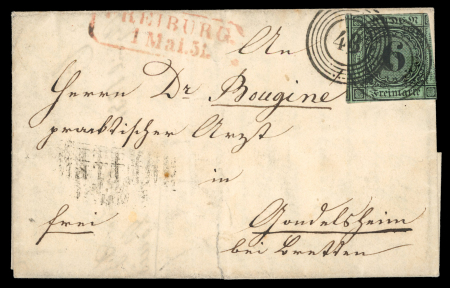 FREIBURG.
1 Mai. 51.
43
6
Freimarke
An
Herrn Dr Bougine
practischer Arzt
in
frei
Gondelsheim
bei Bretten